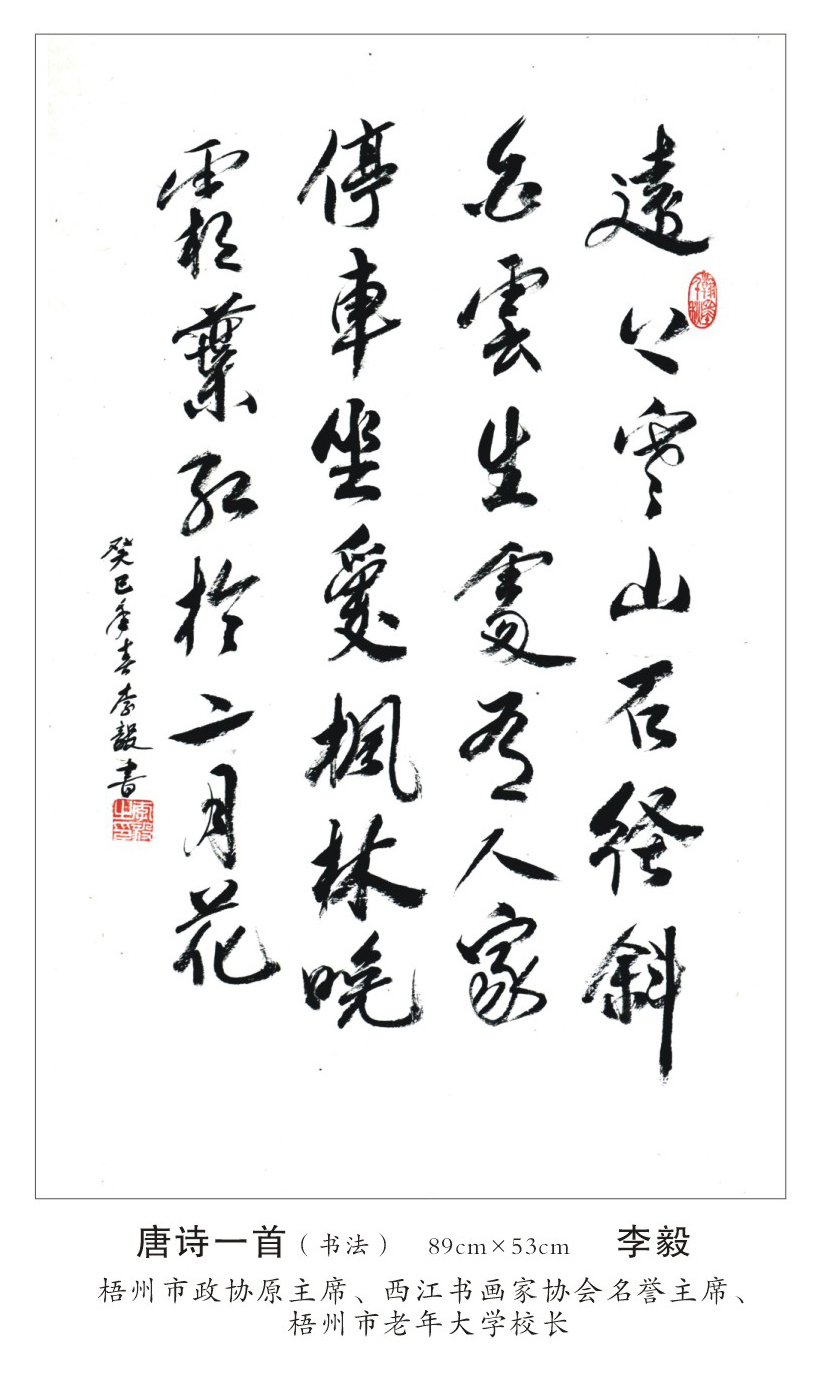 遠上寒山石径斜
白雲生處有人家
停車坐愛楓林晚
霜葉紅於二月花
癸巳年春李毅書
李毅之印
唐诗一首（书法） 89cm×53cm 李毅
梧州市政协原主席、西江书画家协会名誉主席、
梧州市老年大学校长